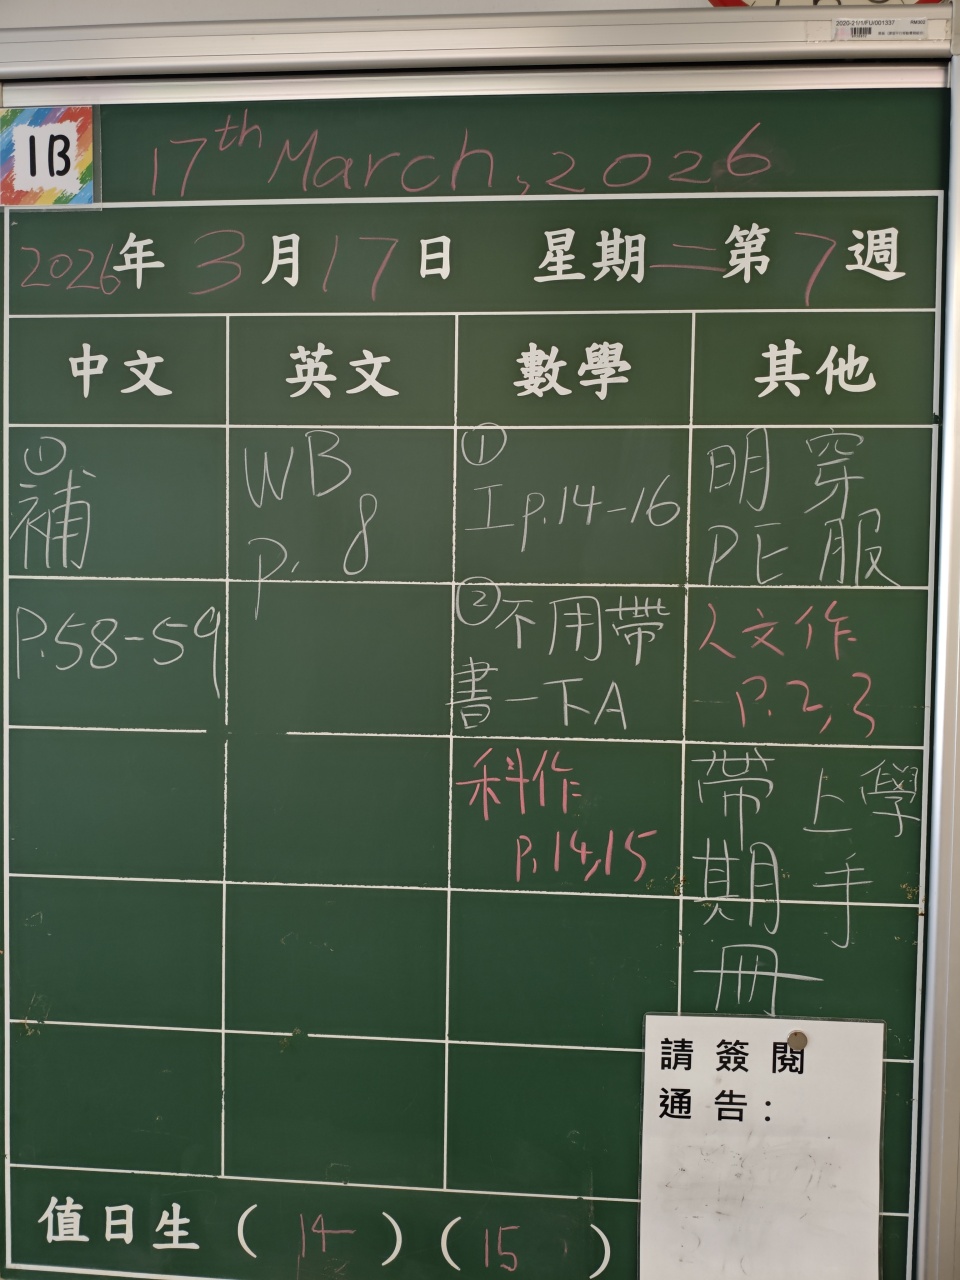 2020-21/1/FU/001337
1B
17th March, 2026
2026年 3月17日 星期二 第7週
中文
英文
數學
其他
①
補
P.58-59
WB
P. 8
①
工 p.14-16
② 不用帶
書一下A
科作
P.14,15
明穿
PE服
人文作
P.2,3
帶上學
期手
冊
請簽閱
通告：
值日生（14）（15）